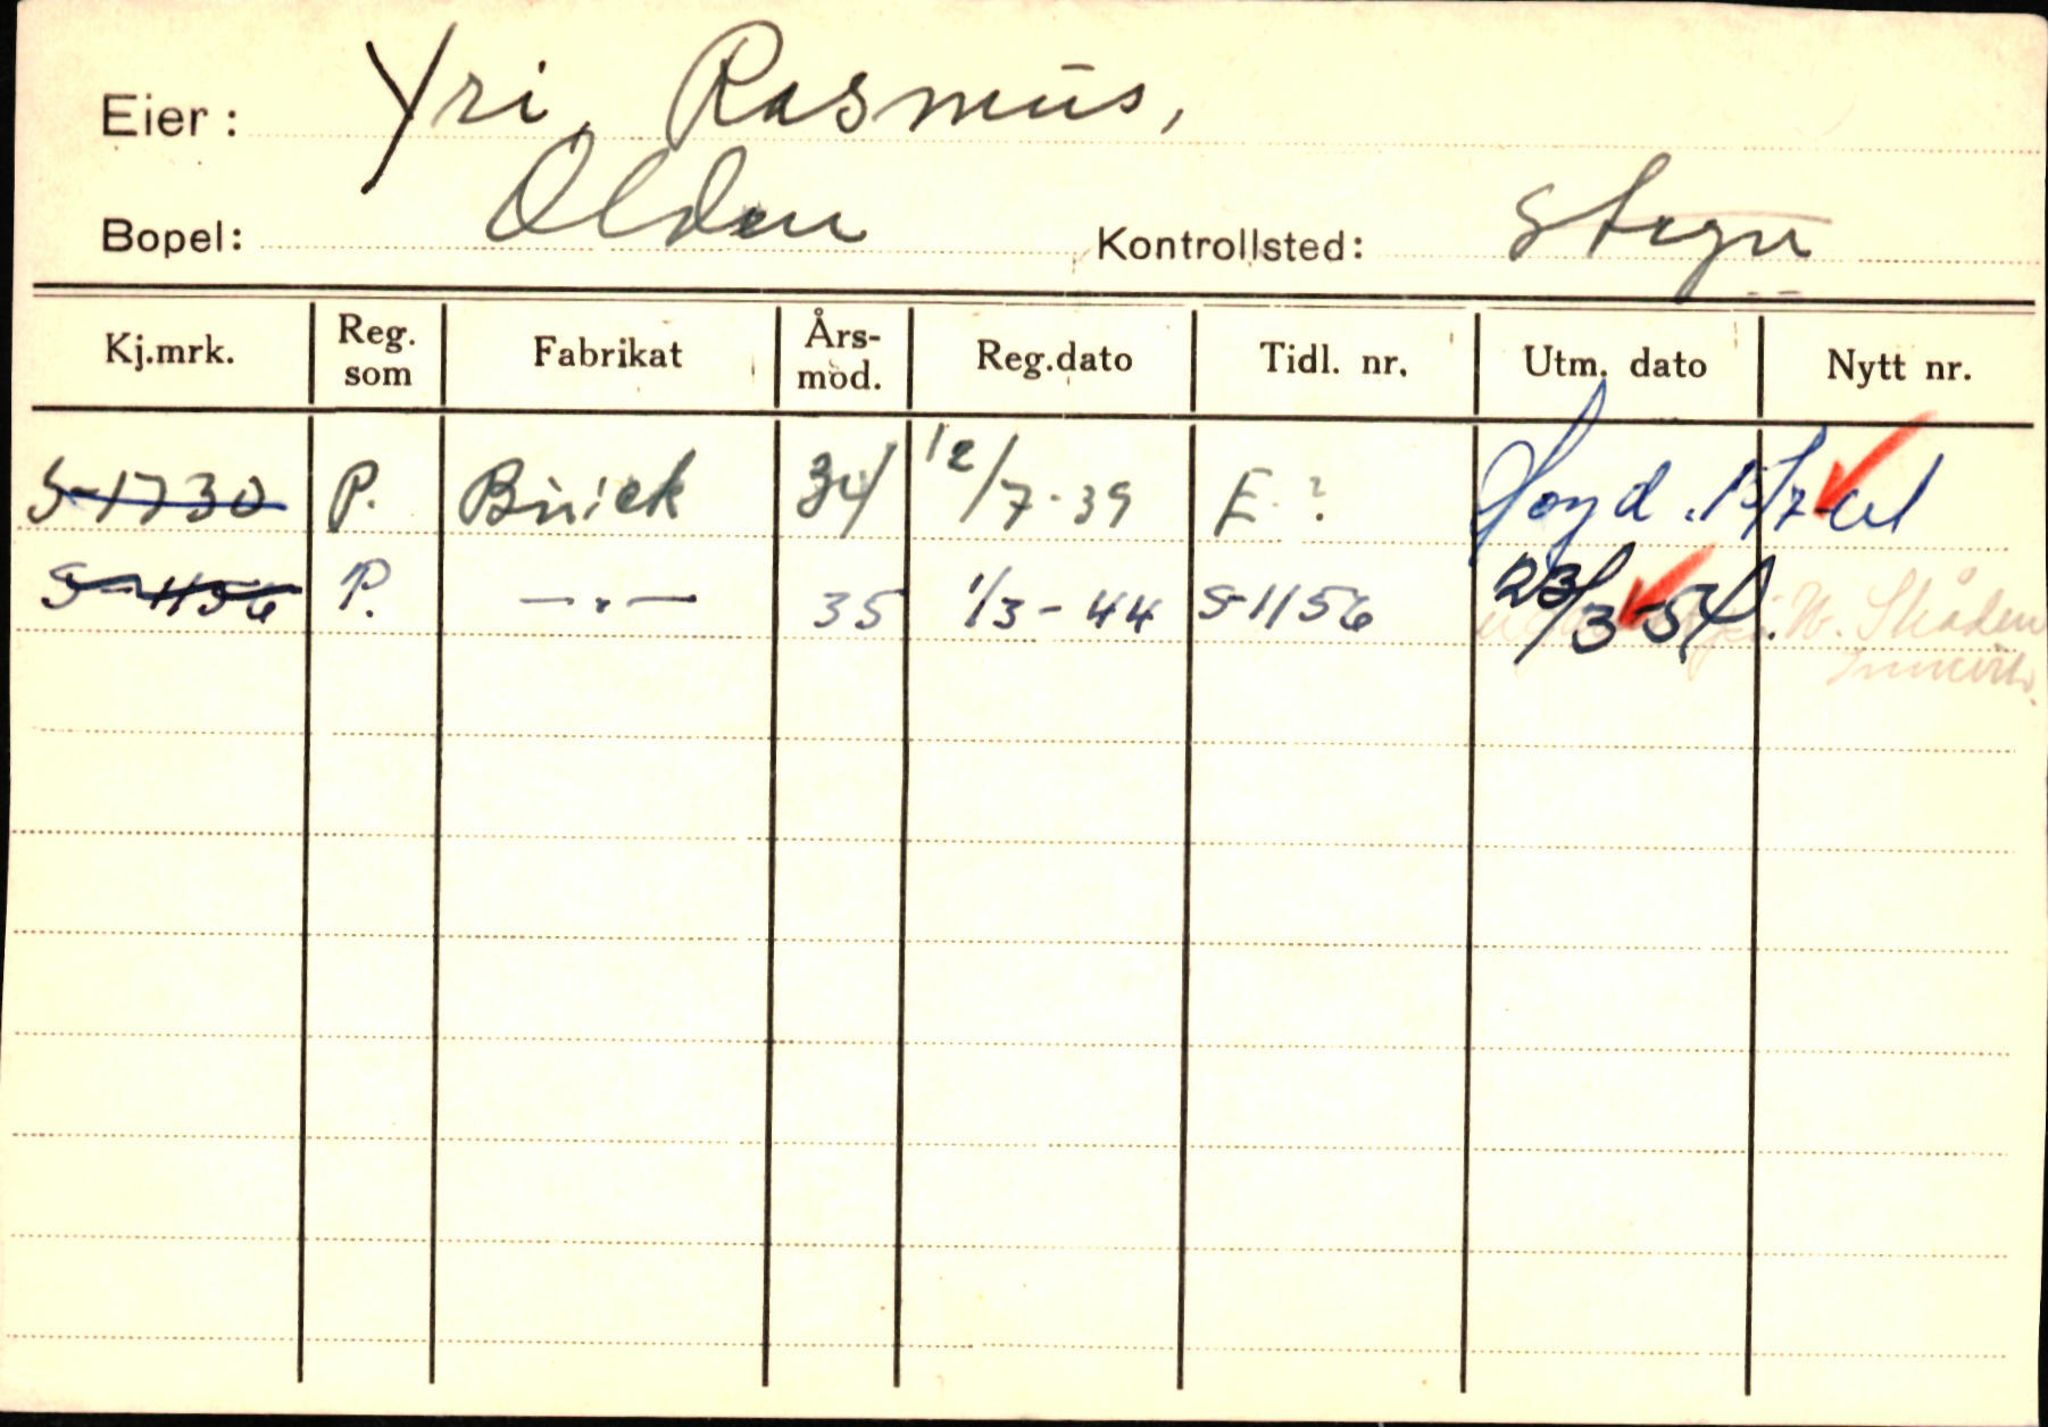 Eier: Yri, Rasmus,
Bopel: Olden Kontrollsted: Stryn
Kj.mrk. Reg. som Fabrikat Års-mod. Reg.dato Tidl. nr. Utm. dato Nytt nr.
S-1730 P. Buick 34 12/7-39 E ?
S-1156 P. —"— 35 1/3-44 S-1156 23/3-54. N. Skåden